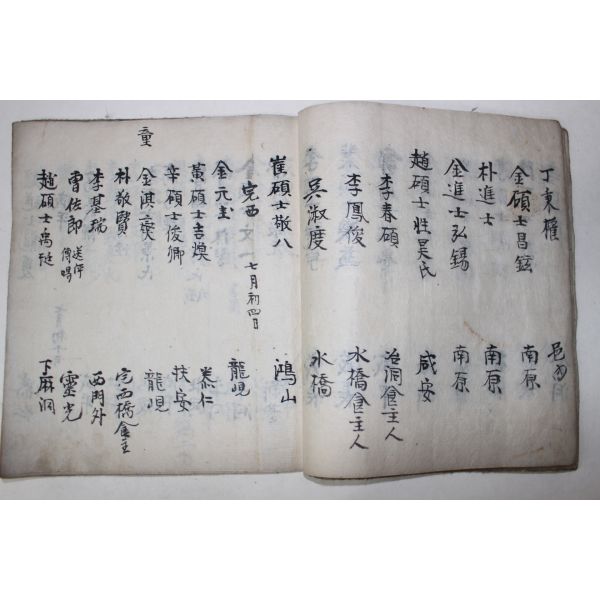 丁東權 邑內
金碩士昌鉉 南原
朴進士 南原
金進士弘錫 南原
趙碩士性昊氏 咸安
李春碩 冶洞食主人
李鳳俊 水橋食主人
吳淑度 水橋
崔碩士敬八 鴻山
完西 七月初四日
金元圭 龍峴
黃碩士吉煥 泰仁
辛碩士俊卿 扶安
金淇 龍峴
朴敬賢 完西橋食主
李基瑞 西門外
曺佐郎 靈光
趙碩士禹 下麻洞
童